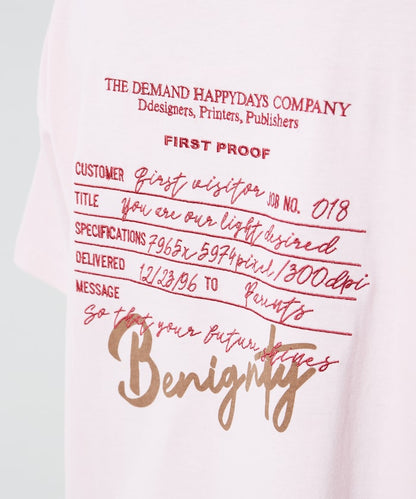 THE DEMAND HAPPYDAYS COMPANY
Ddesigners, Printers, Publishers
FIRST PROOF
CUSTOMER first visitor JOB NO. 018
TITLE You are our light desired
SPECIFICATIONS 7965x5974pixel/300dpi
DELIVERED 12/23/96 TO Parents
MESSAGE
So that your future shines
Benignty